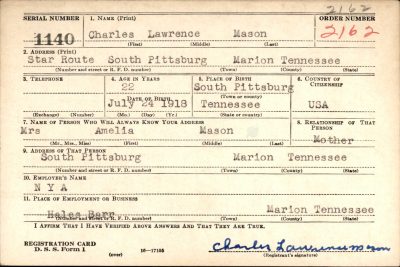 2162
SERIAL NUMBER 1. NAME (Print) ORDER NUMBER
1140 Charles Lawrence Mason 2162
(First) (Middle) (Last)
2. ADDRESS (Print)
Star Route South Pittsburg Marion Tennessee
(Number and street or R. F. D. number) (Town) (County) (State)
3. TELEPHONE 4. AGE IN YEARS 5. PLACE OF BIRTH 6. COUNTRY OF CITIZENSHIP
22 South Pittsburg
DATE OF BIRTH (Town or county)
July 24 1918 Tennessee USA
(Exchange) (Number) (Mo.) (Day) (Yr.) (State or country)
7. NAME OF PERSON WHO WILL ALWAYS KNOW YOUR ADDRESS 8. RELATIONSHIP OF THAT PERSON
Mrs Amelia Mason Mother
(Mr., Mrs., Miss) (First) (Middle) (Last)
9. ADDRESS OF THAT PERSON
South Pittsburg Marion Tennessee
(Number and street or R. F. D. number) (Town) (County) (State)
10. EMPLOYER'S NAME
N Y A
11. PLACE OF EMPLOYMENT OR BUSINESS
Hales Barr Marion Tennessee
(Number and street or R. F. D. number) (Town) (County) (State)
I AFFIRM THAT I HAVE VERIFIED ABOVE ANSWERS AND THAT THEY ARE TRUE.
REGISTRATION CARD
D. S. S. Form 1 (over) 16—17105 Charles Lawrence Mason
(Registrant's signature)